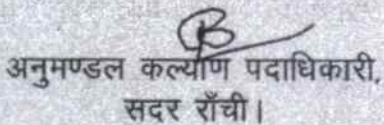 अनुमण्डल कल्याण पदाधिकारी,
सदर राँची।